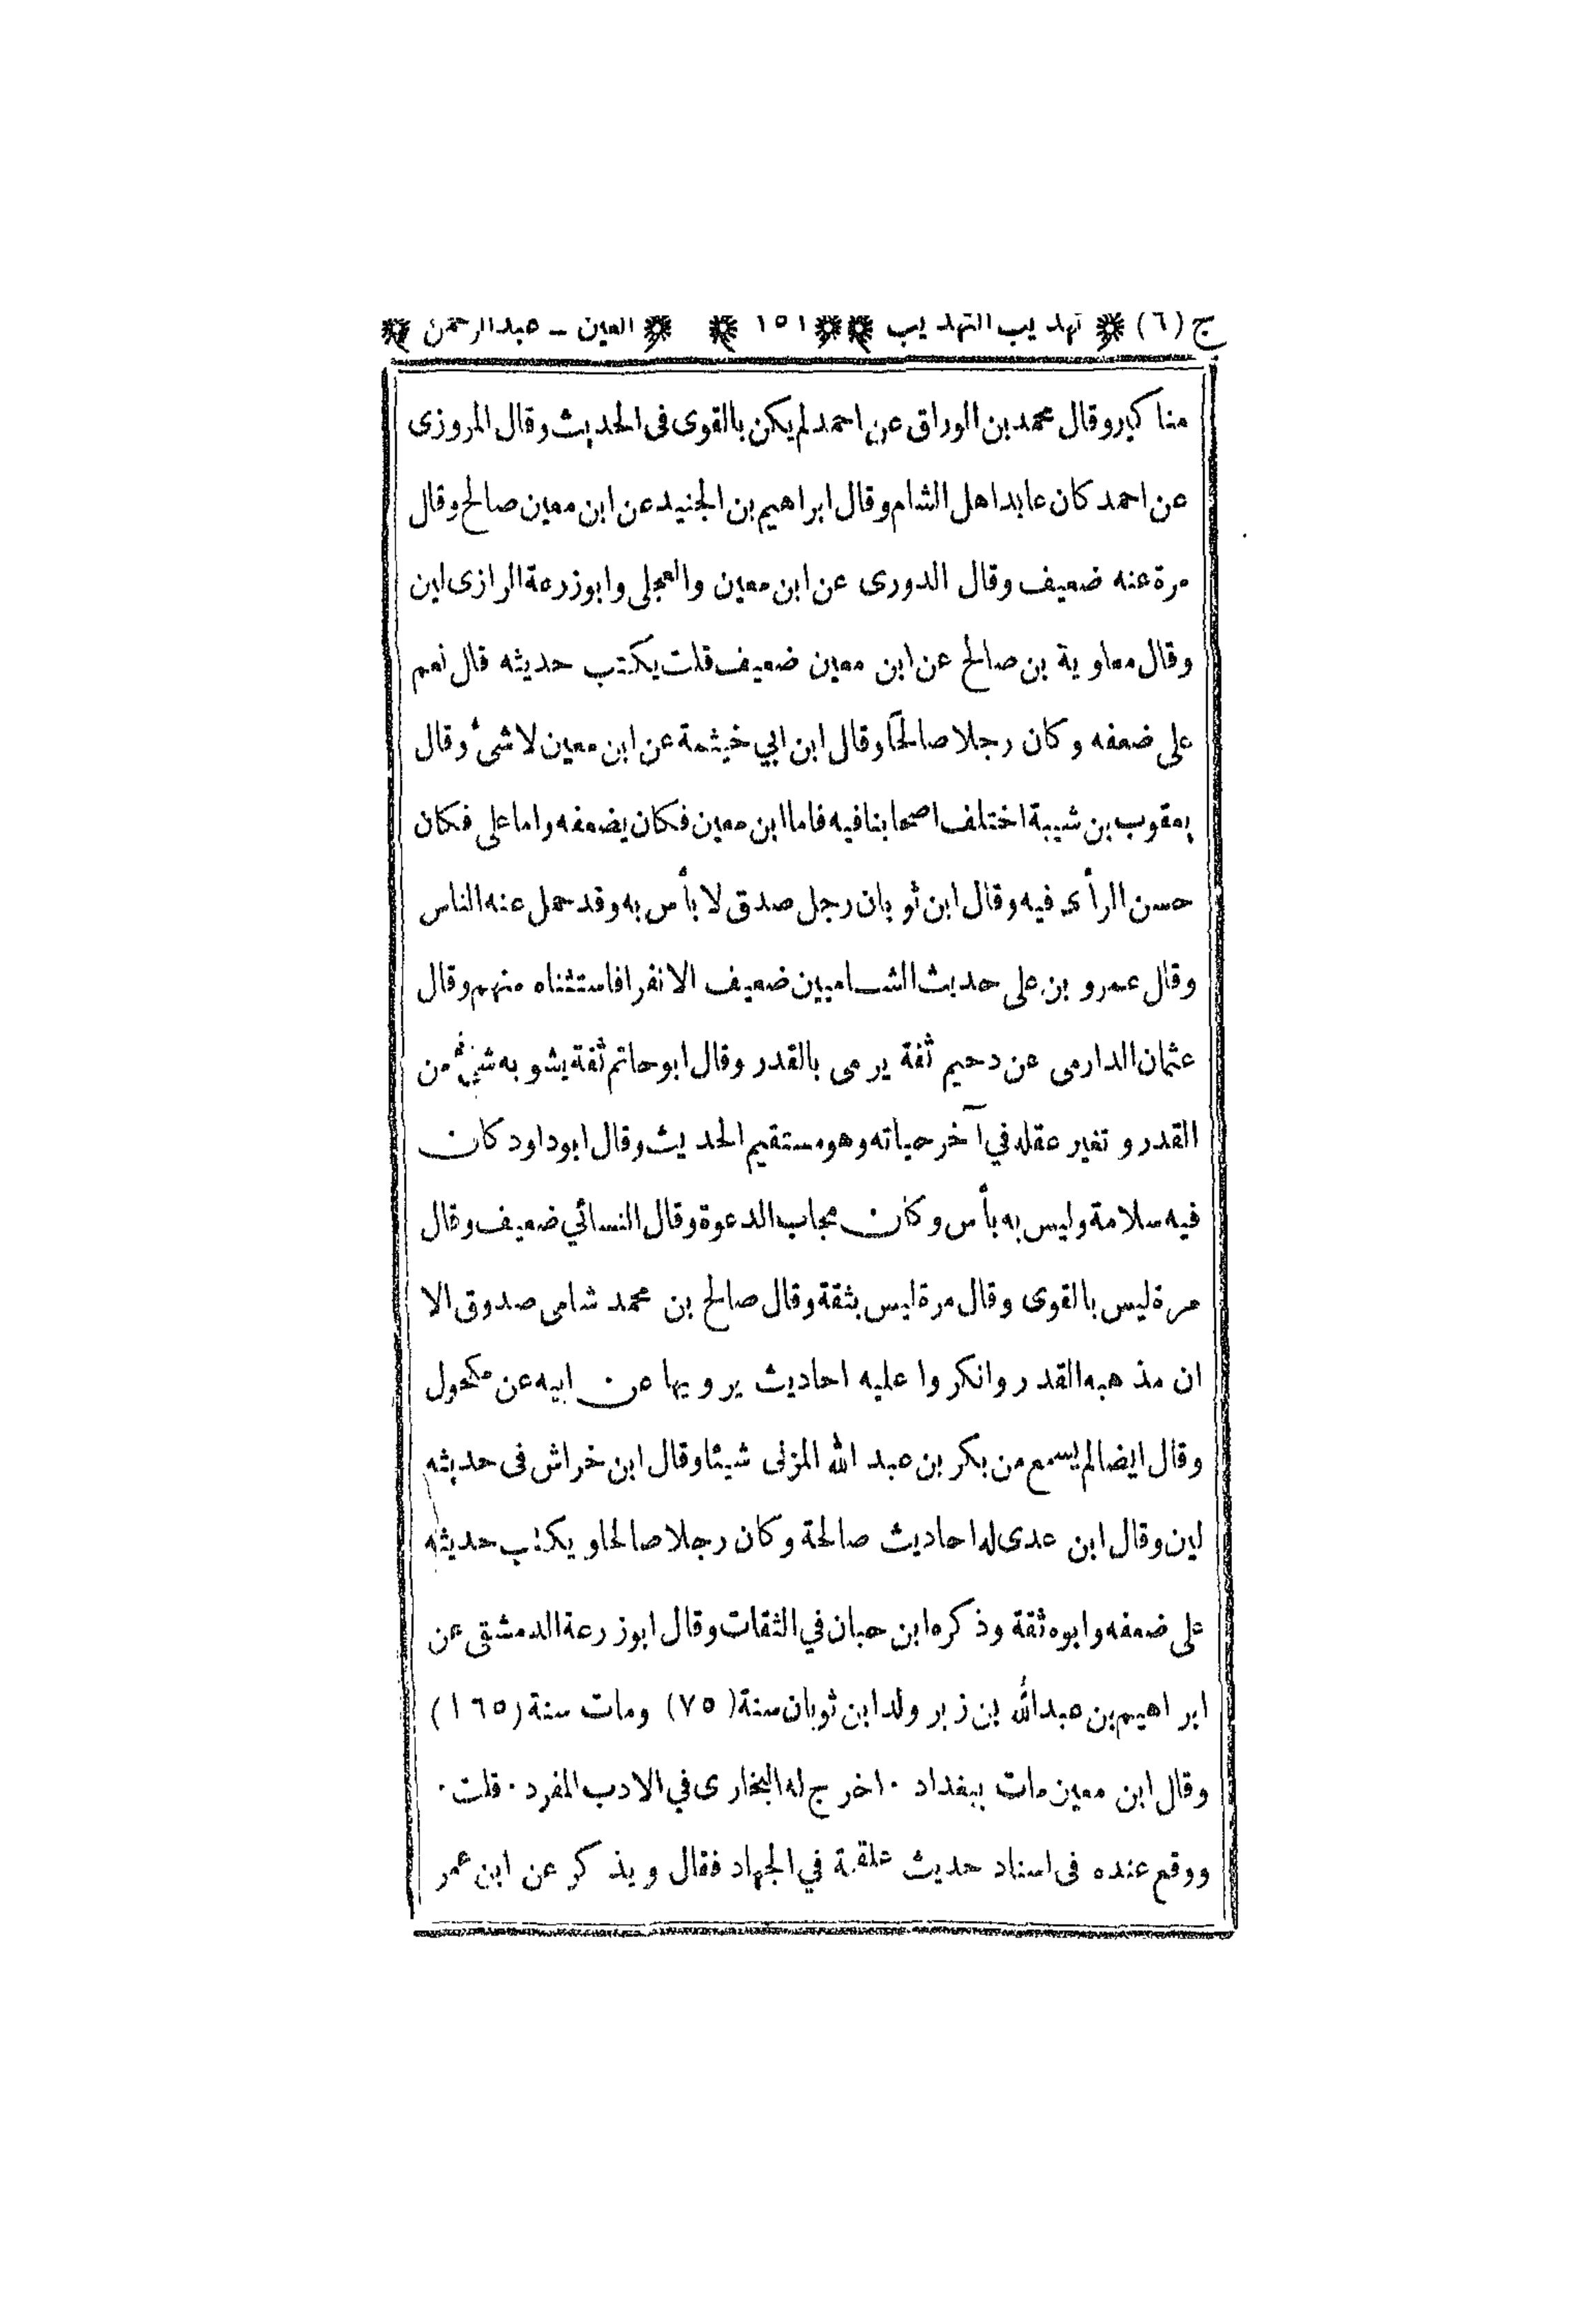 ج (٦) تهذيب التهذيب ١٥١ العين - عبدالرحمن
مناكير وقال محمد بن الوراق عن احمد لم يكن بالقوى فى الحديث وقال المروزى
عن احمد كان عابد اهل الشام وقال ابراهيم بن الجنيد عن ابن معين صالح وقال
مرة عنه ضعيف وقال الدورى عن ابن معين والعجلى وابوزرعة الرازى لين
وقال معاوية بن صالح عن ابن معين ضعيف قلت يكتب حديثه قال نعم
على ضعفه وكان رجلا صالحا وقال ابن ابي خيثمة عن ابن معين لاشئ وقال
يعقوب بن شيبة اختلف اصحابنا فيه فاما ابن معين فكان يضعفه واما على فكان
حسن الرأى فيه وقال ابن ثوبان رجل صدق لا بأس به وقد حمل عنه الناس
وقال عمرو بن على حديث الشاميين ضعيف الا نفرا فاستثناه منهم وقال
عثمان الدارمى عن دحيم ثقة يرمى بالقدر وقال ابوحاتم ثقة يشوبه شئ من
القدر وتغير عقله في آخر حياته وهو مستقيم الحديث وقال ابوداود كان
فيه سلامة وليس به بأس وكان مجاب الدعوة وقال النسائي ضعيف وقال
مرة ليس بالقوى وقال مرة ليس بثقة وقال صالح بن محمد شامى صدوق الا
ان مذهبه القدر وانكروا عليه احاديث يرويها عن ابيه عن مكحول
وقال ايضا لم يسمع من بكر بن عبد الله المزنى شيئا وقال ابن خراش فى حديثه
لين وقال ابن عدى له احاديث صالحة وكان رجلا صالحا ويكتب حديثه
على ضعفه وابوه ثقة وذكره ابن حبان في الثقات وقال ابوزرعة الدمشقى عن
ابراهيم بن عبدالله بن زبر ولد ابن ثوبان سنة (٧٥) ومات سنة (١٦٥)
وقال ابن معين مات ببغداد · اخرج له البخارى في الادب المفرد · قلت ·
ووقع عنده فى اسناد حديث علقمة في الجهاد فقال ويذكر عن ابن عمر